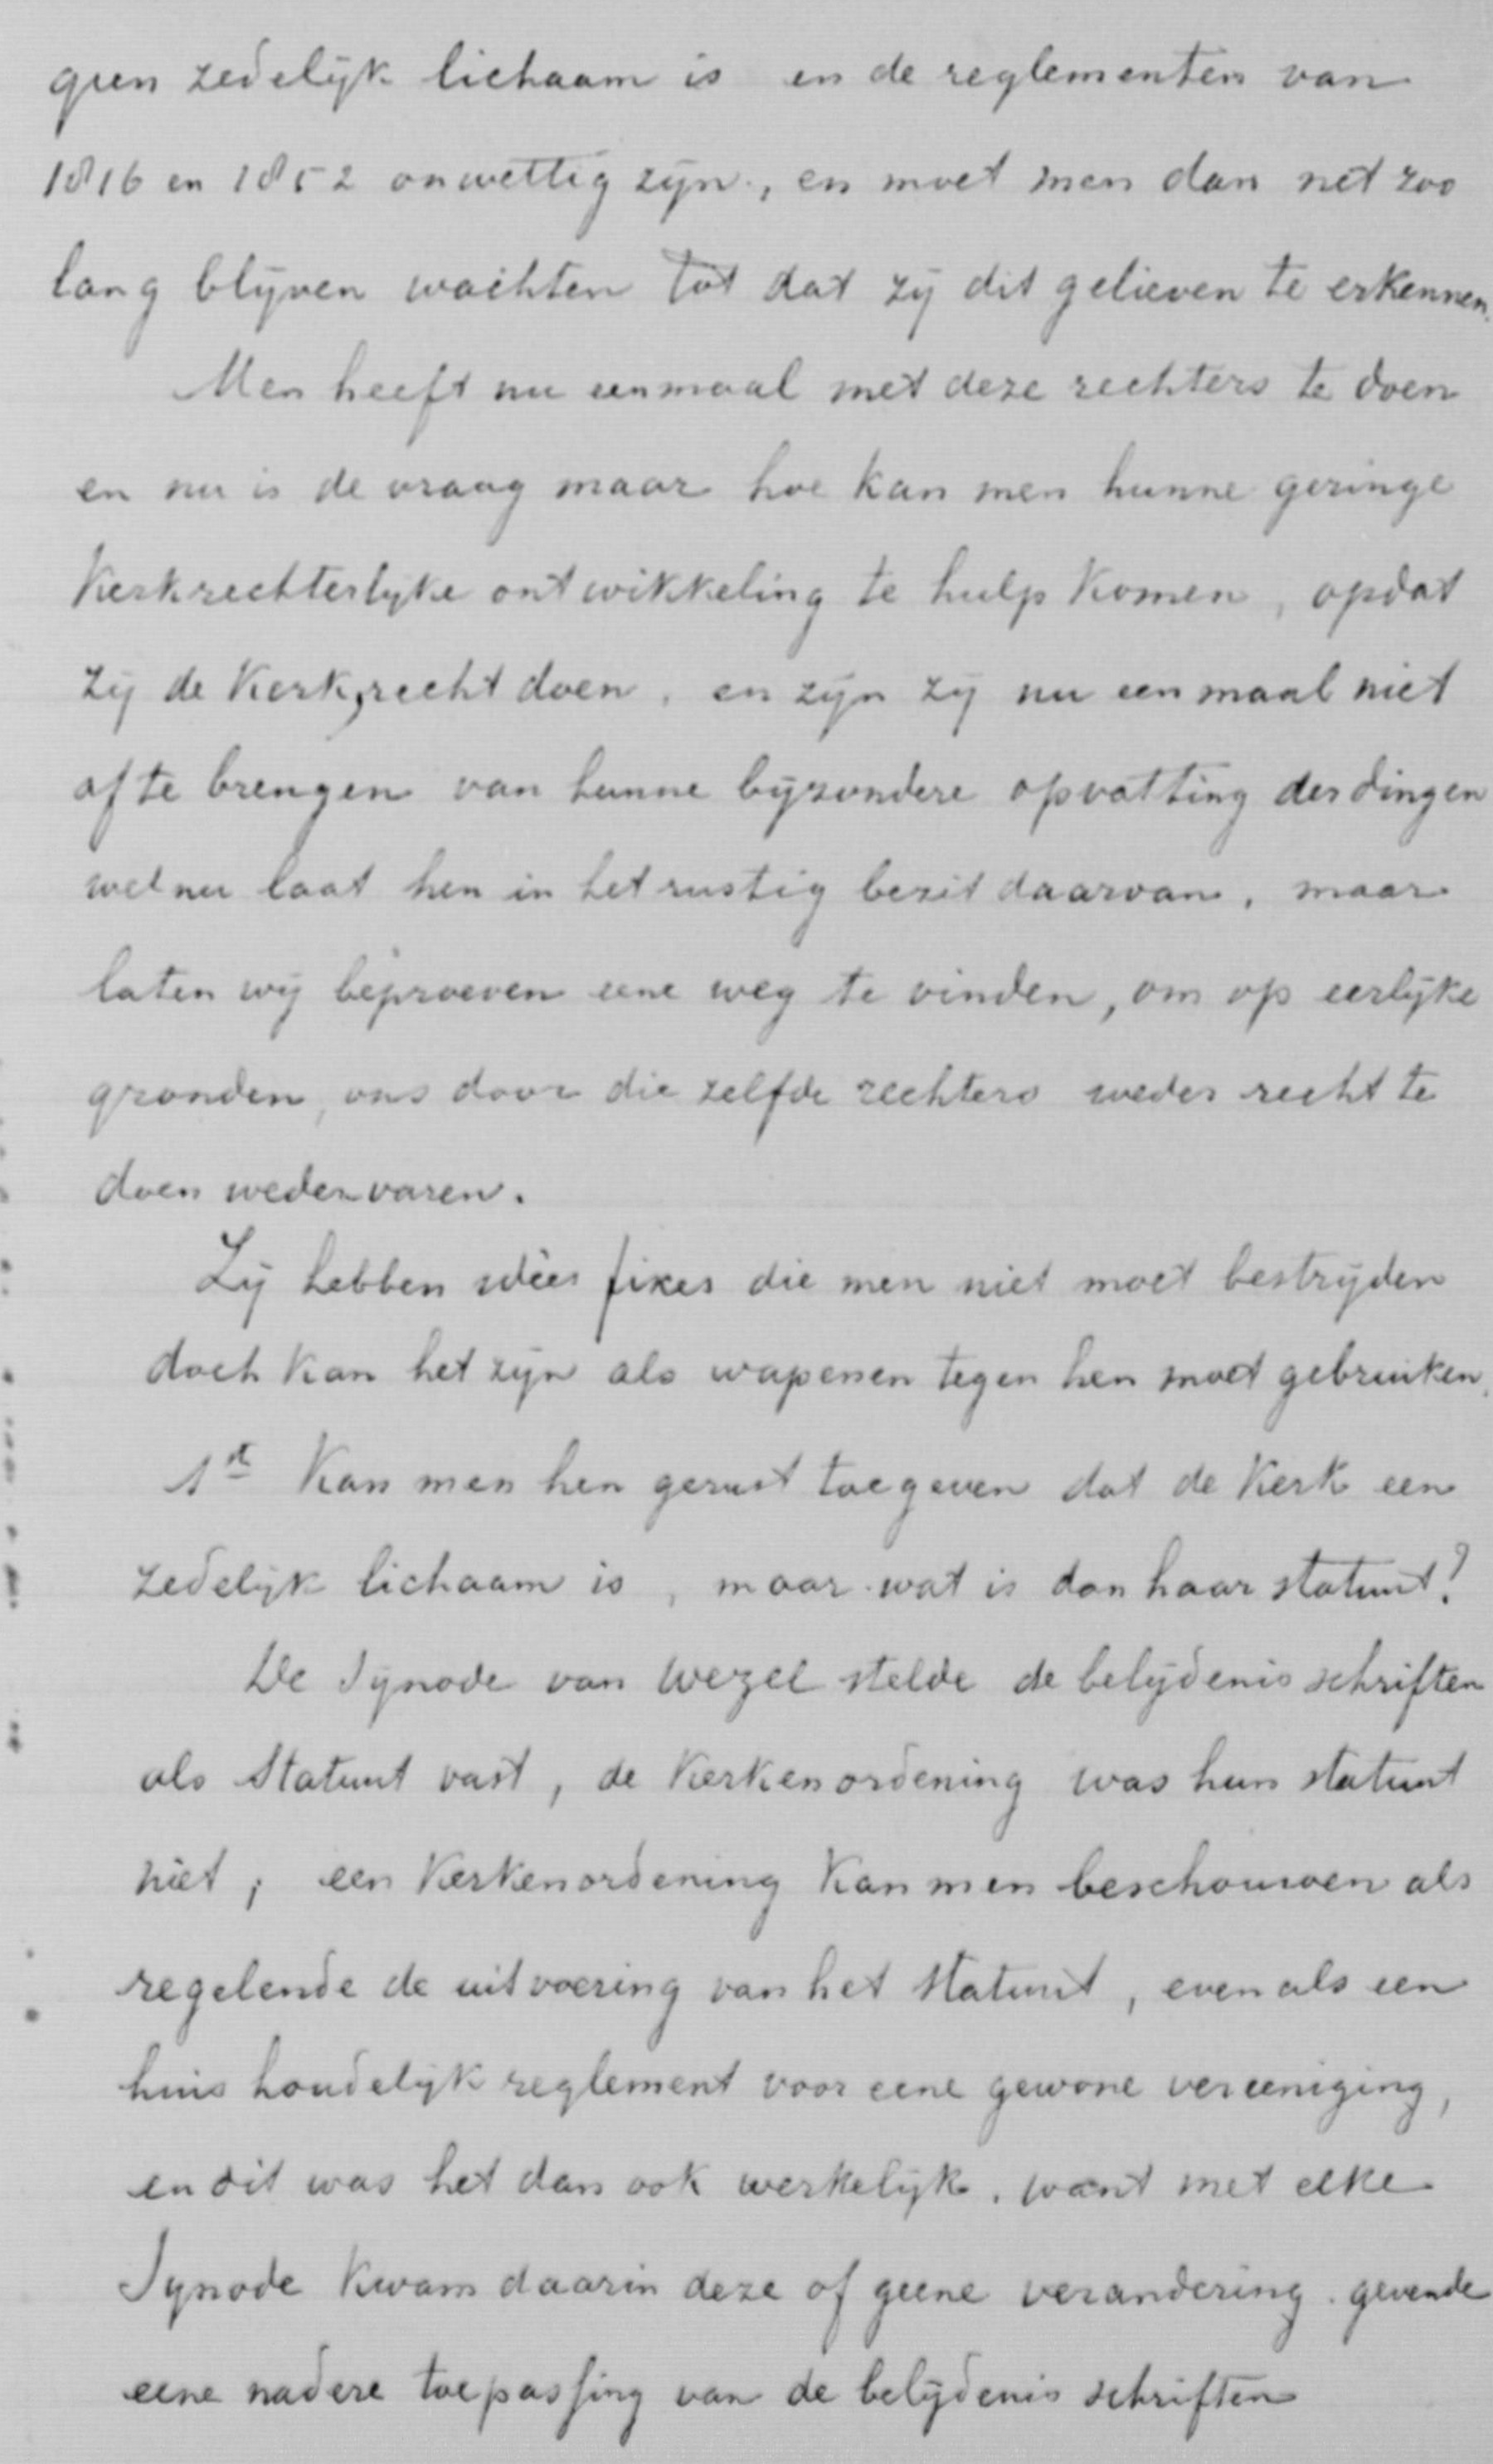 geen zedelijk lichaam is en de reglementen van
1816 en 1852 onwettig zijn, en moet men dan net zoo
lang blijven wachten tot dat zij dit gelieven te erkennen.
Men heeft nu eenmaal met deze rechters te doen
en nu is de vraag maar hoe kan men hunne geringe
Kerkrechterlijke ontwikkeling te hulp komen, opdat
zij de Kerk, recht doen, en zijn zij nu eenmaal niet
af te brengen van hunne bijzondere opvatting der dingen
welnu laat hen in het rustig bezit daarvan, maar
laten wij beproeven eene weg te vinden, om op eerlijke
gronden, ons door die zelfde rechters weder recht te
doen wedervaren.
Zij hebben idées fixes die men niet moet bestrijden
doch kan het zijn als wapenen tegen hen moet gebruiken.
1st Kan men hen gerust toegeven dat de Kerk een
zedelijk lichaam is, maar wat is dan haar statuut?
De Synode van Wezel stelde de belijdenis schriften
als Statuut vast, de Kerkenordening was hun statuut
niet; een Kerkenordening kan men beschouwen als
regelende de uitvoering van het Statuut, even als een
huis houdelijk reglement voor eene gewone vereeniging,
en dit was het dan ook werkelijk, want met elke
Synode kwam daarin deze of geene verandering. gevende
eene nadere toepassing van de belijdenis schriften